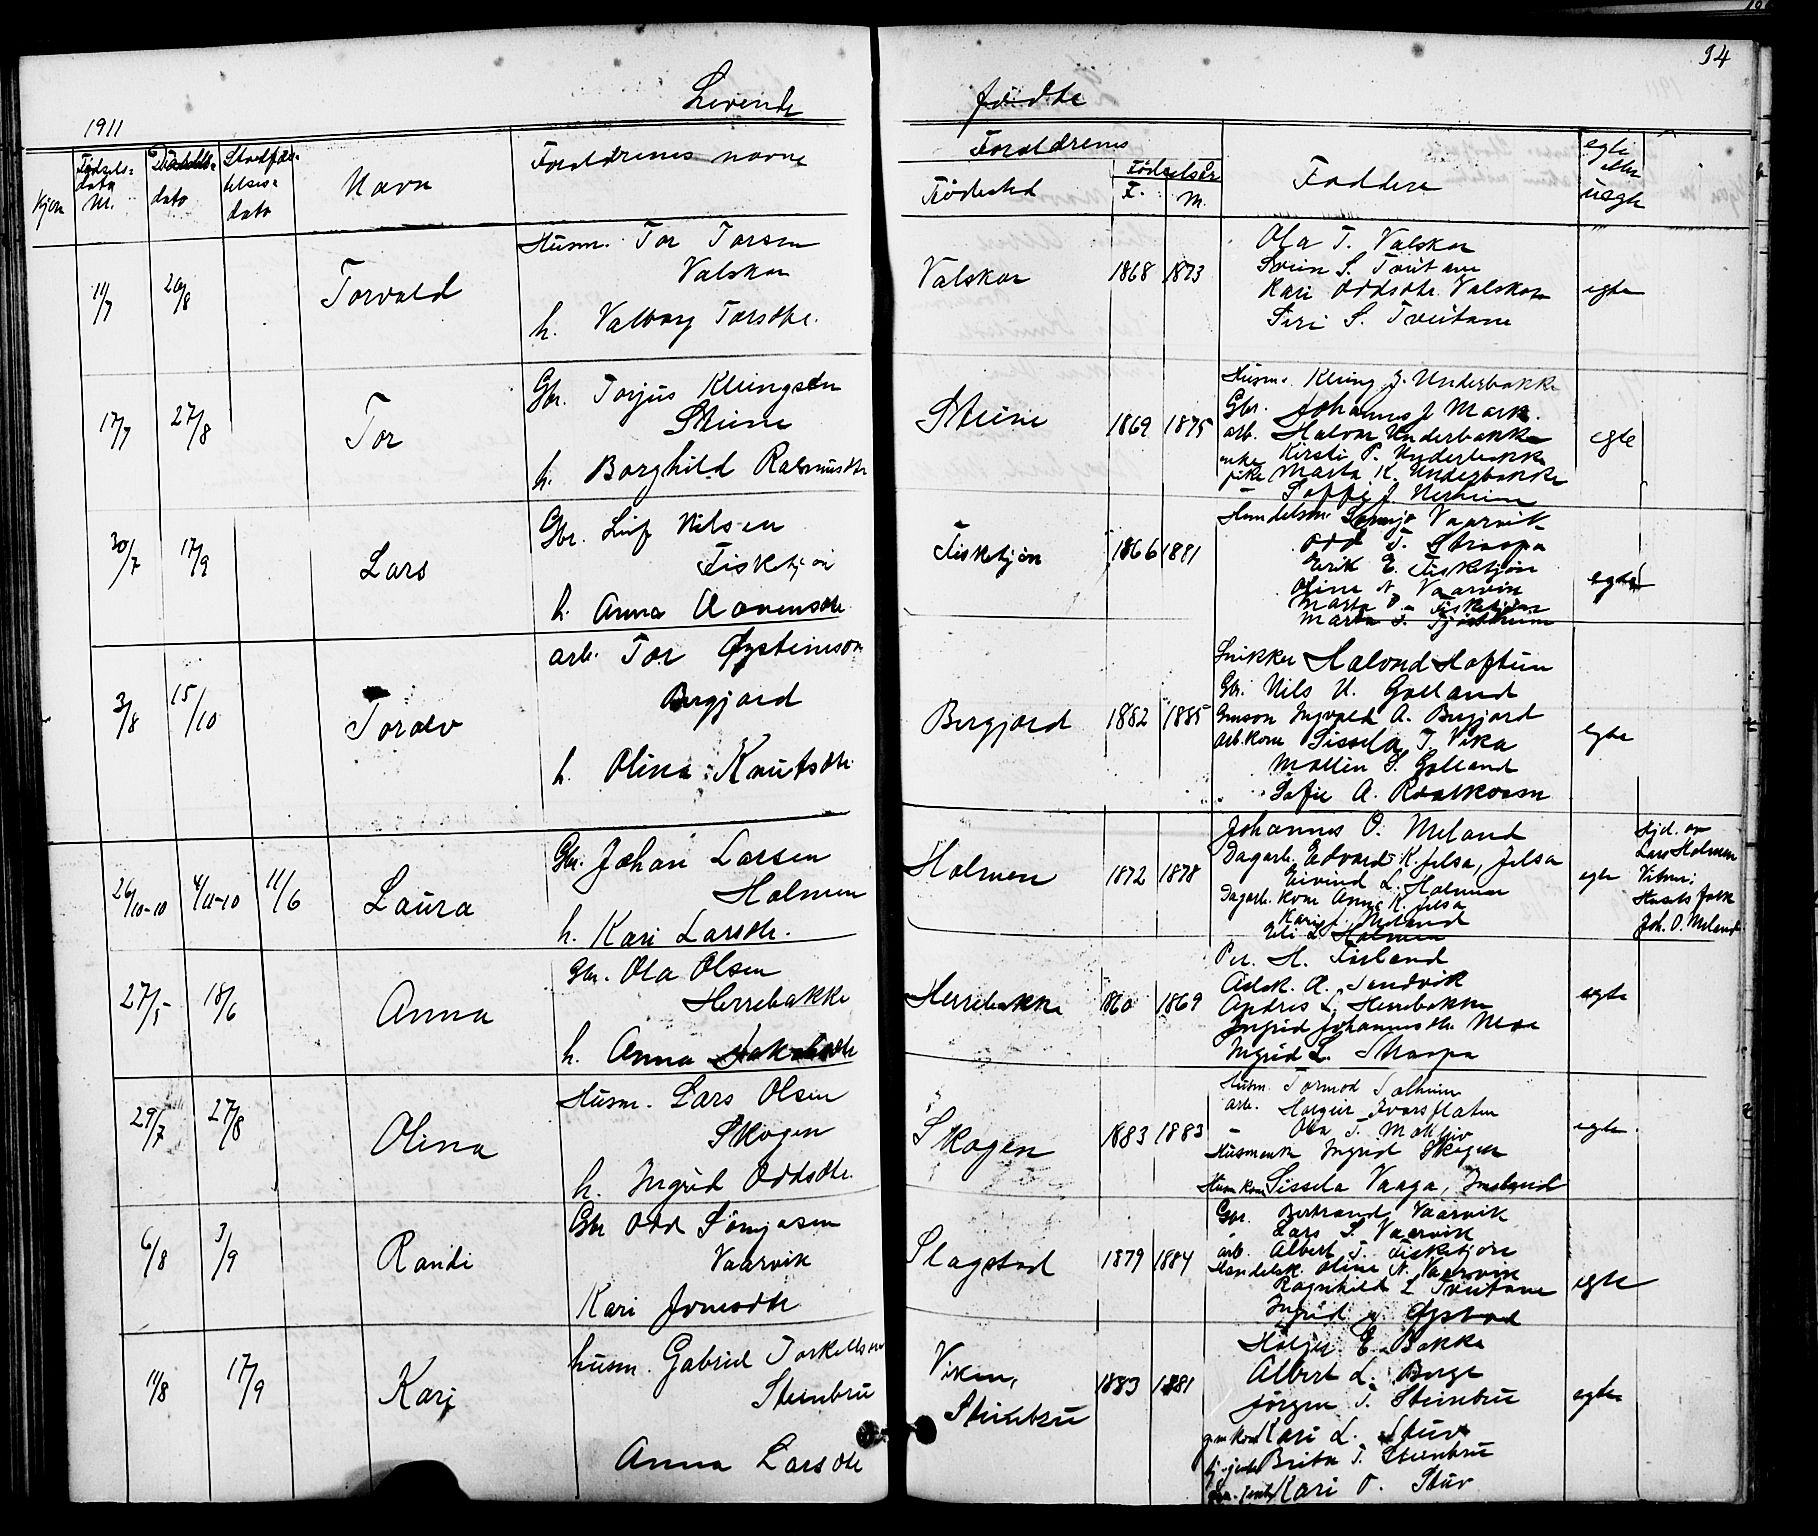 94
Levende fødte
1911
Kjøn
Fødsels-
data
M.
data
data
Navn
Forældrenes navne
Forældrenes
Fødested
Fødselsår
F.
M.
Faddere
egte
eller
uegte
11/7
20/8
Torvald
Husm. Tor Torsen
Valskar
h. Valborg Torsdtr.
Valskar
1868
1873
Ola T. Valskar
Svein S. Tveitane
Kari Oddsdtr. Valskar
Siri S. Tveitane
egte
17/7
27/8
Tor
Gbr. Torjus Klungsen
Steine
h. Borghild Rasmusdtr
Steine
1869
1875
Husm. Kleing J. Underbakke
Gbr. Johannes J. Mark.
arb. Halvor Underbakke
enke Kirsti P. Underbakke
pike Marta K. Underbakke
J. Nerheim
egte
30/7
17/9
Lars
Gbr. Leif Nilsen
Fisketjøn
h. Anna Aanensdtr.
Fisketjøn
1866
1881
Handelsm. Sømje Vaarvik
Odd T. Straapa
Eirik E. Fisketjøn
Oline N. Vaarvik
Marta O. Fisketjøn
Marta T.
egte
3/8
15/10
Toralv
arb. Tor Øysteinson
Bergjord
h. Olina Knutsdtr.
Bergjord
1882
1885
Snikker Halvord Haftun
Gbr. Nils U. Golland
Gmson Ingvald A. Bergjord
arb.kone Sissela T. Vika
Mallin S. Golland
Sofie A. Raalkvam
egte
26/10-10
4/11-10
11/6
Laura
Gbr. Johan Larsen
Holmen
h. Kari Larsdtr.
Holmen
1872
1878
Johannes O. Meland
Dagarb. Edvard K. Jelsa, Jelsa
Eivind L. Holmen
Dagarb. kone Anne K. Jelsa
Kari J. Meland
Eli L. Holmen
egte
Hjd. av
Lars Holmen
Vitner:
Husets folk
Joh. O. Meland
27/5
18/6
Anna
Gbr. Ola Olsen
Herrebakke
h. Anna Jakobsdtr
Herrebakke
1860
1869
Per. H.
Aslak. A. Sandvik
Andres L. Herrebakke
Ingrid Johannesdtr. Moe
Ingrid L. Straapa
egte
29/7
27/8
Olina
Husm. Lars Olsen
Skogen
h. Ingrid Oddsdtr.
Skogen
1883
1883
Husm. Tormod Solheim
arb. Holgeir Ivarsflaten
Ola T.
Husmenk Ingrid Skogen
Husm kone Sissela Vaaga, Imsland
egte
6/8
3/9
Randi
Gbr Odd Sømjasen
Vaarvik
Kari Jonesdtr
Slagstad
1879
1884
Gbr. Bertrand Vaarvik
Lars S. Vaarvik
arb. Albert T. Fisketjøn
Handelsk. Oline N. Vaarvik
Ragnhild L Tveitane
Ingrid Øystad
egte
11/8
17/9
Kari
husm. Gabriel Torkellsen
Steinbru
Anna Larsdtr
Viken,
Steinbru
1883
1881
Holger E. Bakka
Albert L. Berge
Jørgen T. Steinbru
gmkone Kari L. Stuv
Brita T. Steinbru
Kari O. Stuv
egte